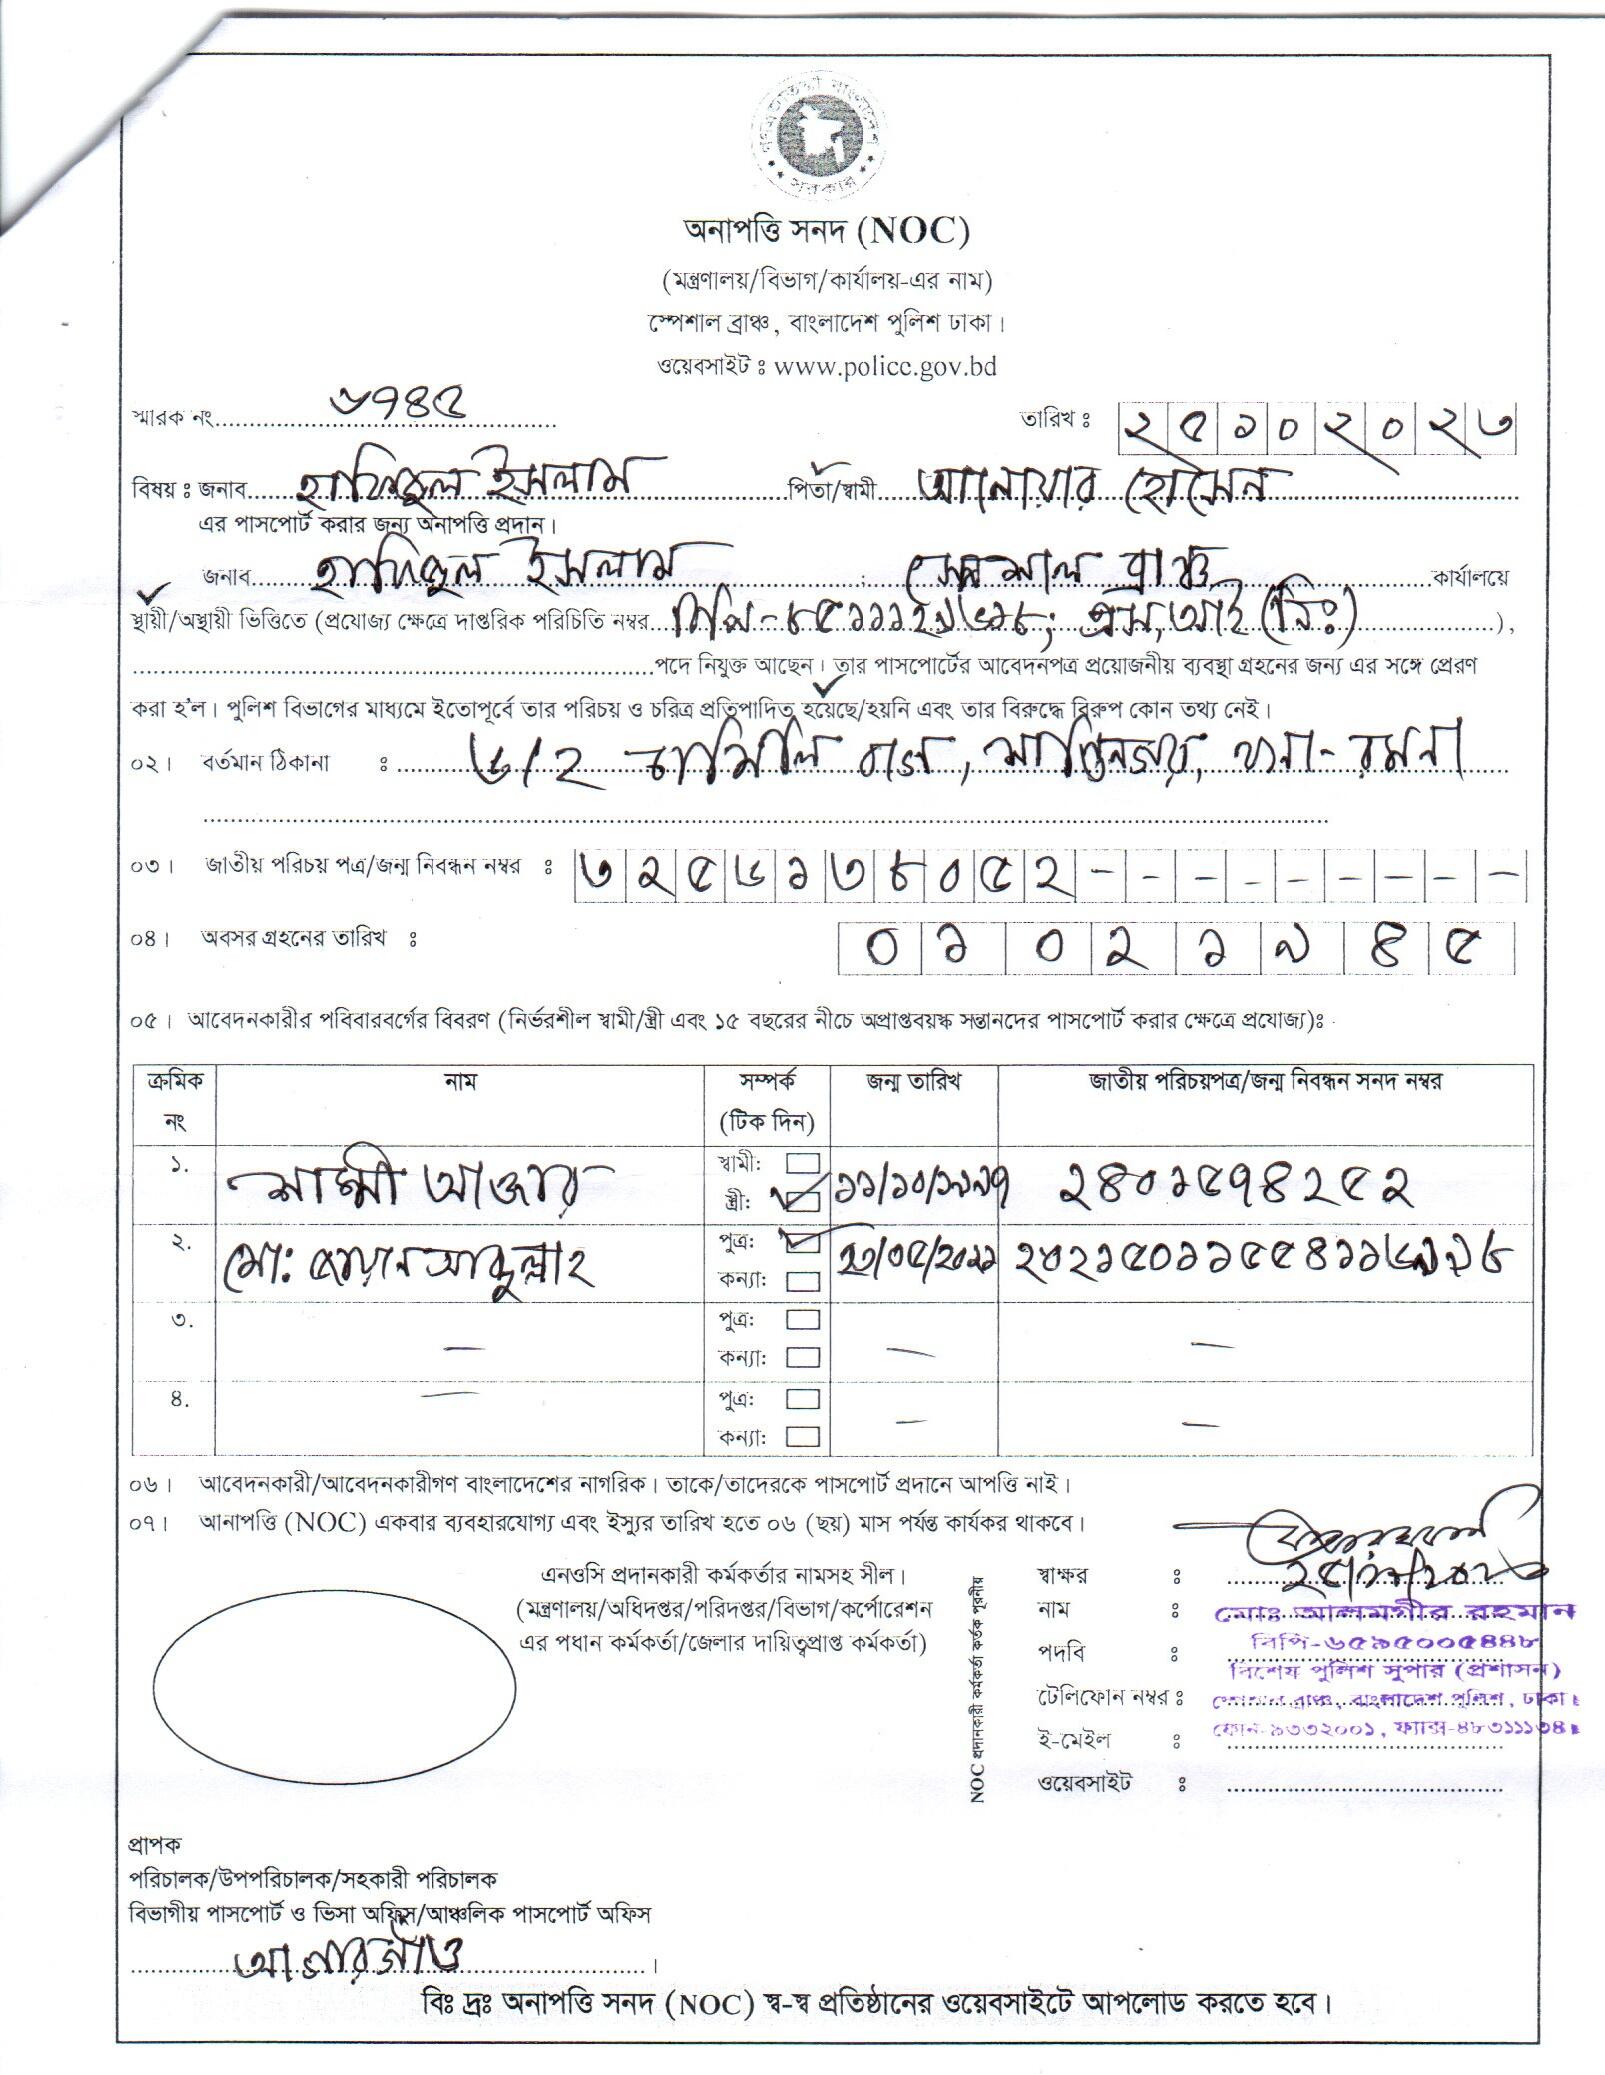 গণপ্রজাতন্ত্রী বাংলাদেশ
সরকার
অনাপত্তি সনদ (NOC)
(মন্ত্রণালয়/বিভাগ/কার্যালয়-এর নাম)
স্পেশাল ব্রাঞ্চ, বাংলাদেশ পুলিশ ঢাকা।
ওয়েবসাইট ঃ www.police.gov.bd
স্মারক নং ৬৭৪৫ তারিখ ঃ ২৫১০২০২৩
বিষয় ঃ জনাব হাফিজুল ইসলাম পিতা/স্বামী আনোয়ার হোসেন
এর পাসপোর্ট করার জন্য অনাপত্তি প্রদান।
জনাব হাফিজুল ইসলাম ; স্পেশাল ব্রাঞ্চ কার্যালয়ে
স্থায়ী/অস্থায়ী ভিত্তিতে (প্রযোজ্য ক্ষেত্রে দাপ্তরিক পরিচিতি নম্বর বিপি-৮৫১১১২৯৬১৮; এস,আই (নিঃ) ),
পদে নিযুক্ত আছেন। তার পাসপোর্টের আবেদনপত্র প্রয়োজনীয় ব্যবস্থা গ্রহনের জন্য এর সঙ্গে প্রেরণ
করা হ'ল। পুলিশ বিভাগের মাধ্যমে ইতোপূর্বে তার পরিচয় ও চরিত্র প্রতিপাদিত হয়েছে/হয়নি এবং তার বিরুদ্ধে বিরুপ কোন তথ্য নেই।
০২। বর্তমান ঠিকানা ঃ ৬/২ চামিলি বাগ, শান্তিনগর, থানা- রমনা
০৩। জাতীয় পরিচয় পত্র/জন্ম নিবন্ধন নম্বর ঃ ৩২৫৬১৩৮০৫২ - - - - - - - - -
০৪। অবসর গ্রহনের তারিখ ঃ ০১০২১৯৪৫
০৫। আবেদনকারীর পবিবারবর্গের বিবরণ (নির্ভরশীল স্বামী/স্ত্রী এবং ১৫ বছরের নীচে অপ্রাপ্তবয়স্ক সন্তানদের পাসপোর্ট করার ক্ষেত্রে প্রযোজ্য)ঃ
ক্রমিক নাম সম্পর্ক জন্ম তারিখ জাতীয় পরিচয়পত্র/জন্ম নিবন্ধন সনদ নম্বর
নং (টিক দিন)
১. স্বামী:
শাম্মী আক্তার স্ত্রী: ১১/১০/১৯৯৭ ২৪০১৫৭৪২৫২
২. পুত্র:
মো: আব্দুল্লাহ কন্যা:
৩. পুত্র:
— কন্যা: — —
৪. — পুত্র:
কন্যা: — —
০৬। আবেদনকারী/আবেদনকারীগণ বাংলাদেশের নাগরিক। তাকে/তাদেরকে পাসপোর্ট প্রদানে আপত্তি নাই।
০৭। আনাপত্তি (NOC) একবার ব্যবহারযোগ্য এবং ইস্যুর তারিখ হতে ০৬ (ছয়) মাস পর্যন্ত কার্যকর থাকবে।
এনওসি প্রদানকারী কর্মকর্তার নামসহ সীল।
(মন্ত্রণালয়/অধিদপ্তর/পরিদপ্তর/বিভাগ/কর্পোরেশন
এর পধান কর্মকর্তা/জেলার দায়িত্বপ্রাপ্ত কর্মকর্তা)
NOC প্রদানকারী কর্মকর্তা কর্তৃক পূরনীয়
স্বাক্ষর ঃ
নাম ঃ মোঃ আলমগীর রহমান
বিপি-৬৫৯৫০০৫৪৪৮
পদবি ঃ বিশেষ পুলিশ সুপার (প্রশাসন)
টেলিফোন নম্বর ঃ স্পেশাল ব্রাঞ্চ, বাংলাদেশ পুলিশ, ঢাকা।
ই-মেইল ঃ ফোন-৯৩৩২০০১, ফ্যাক্স-৪৮৩১১১৩৪।
ওয়েবসাইট ঃ
প্রাপক
পরিচালক/উপপরিচালক/সহকারী পরিচালক
বিভাগীয় পাসপোর্ট ও ভিসা অফিস/আঞ্চলিক পাসপোর্ট অফিস
আগারগাঁও ।
বিঃ দ্রঃ অনাপত্তি সনদ (NOC) স্ব-স্ব প্রতিষ্ঠানের ওয়েবসাইটে আপলোড করতে হবে।